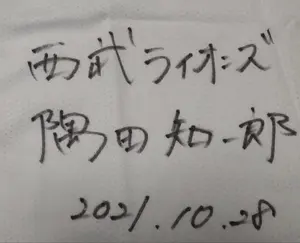 西武ライオンズ
隅田知一郎
2021.10.28